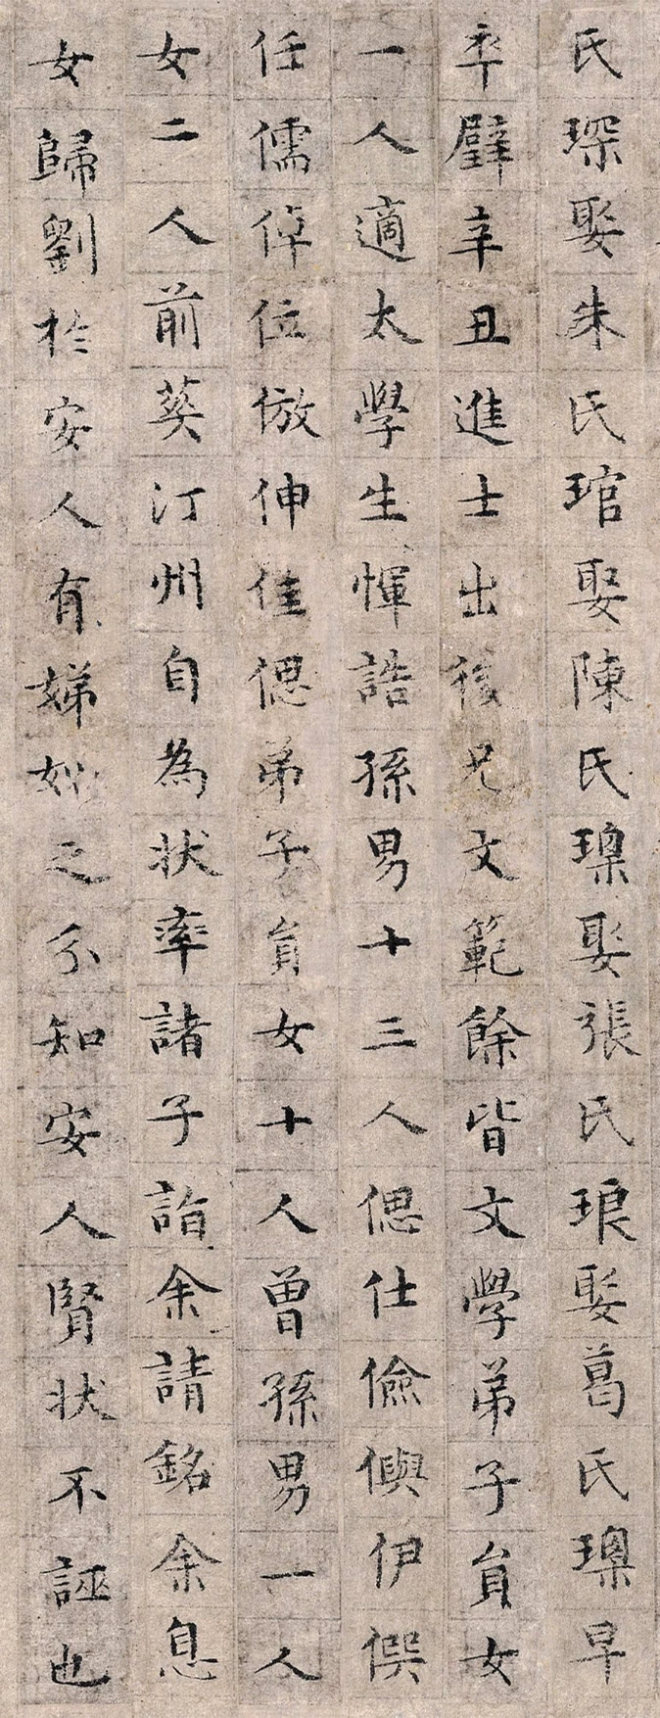 氏琛娶朱氏琯娶陳氏璟娶張氏琅娶葛氏璟早
卒璧辛丑進士出後兄文範餘皆文學弟子員女
一人適太學生惲誥孫男十三人偲仕儉俁伊僎
任儒倬位倣伸佳偲弟子員女十人曾孫男一人
女二人前葵汀州自為狀率諸子詣余請銘余息
女歸劉於安人有娣姒之分知安人賢狀不誣也